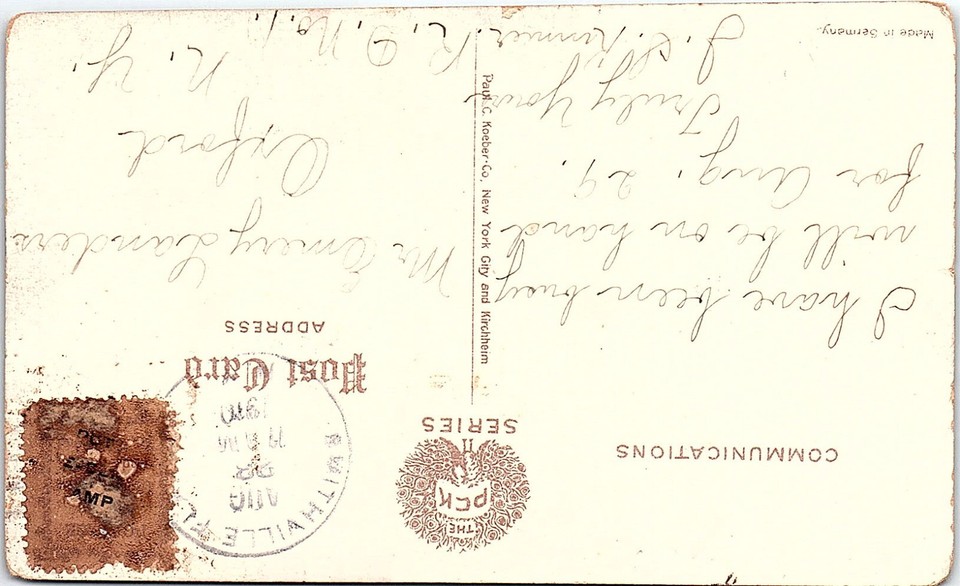 COMMUNICATIONS
THE
PCK
SERIES
Post Card
ADDRESS
SMITHVILLE FL
AUG
22
1910
AMP
I have been busy
will be on hand
for Aug. 29.
Truly Yours
Mr Emery Landers
Oxford
N. Y.
R. D. No. 1.
Paul C. Koeber Co. New York City and Kirchheim
Made in Germany.